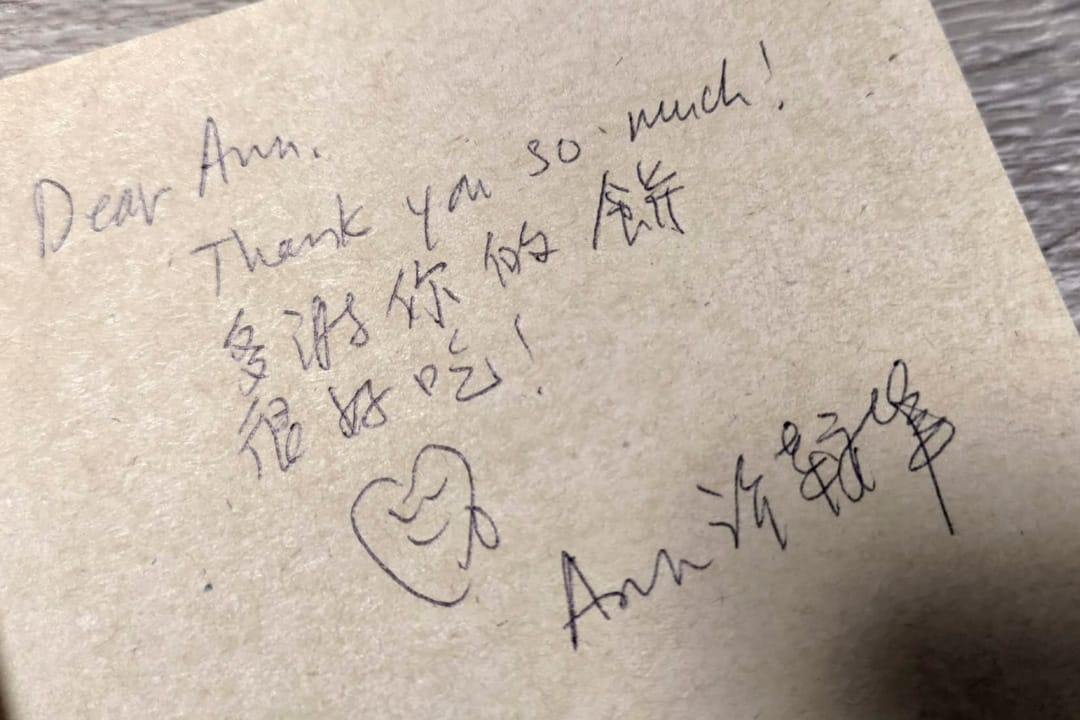 Dear Ann.
Thank you so much!
多謝你的餅
很好吃!
Ann 許